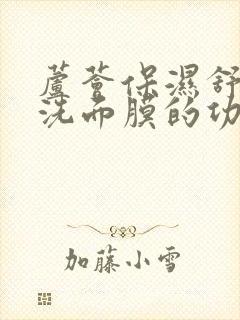 蘆薈保濕舒
洗面膜的功
加藤小雪